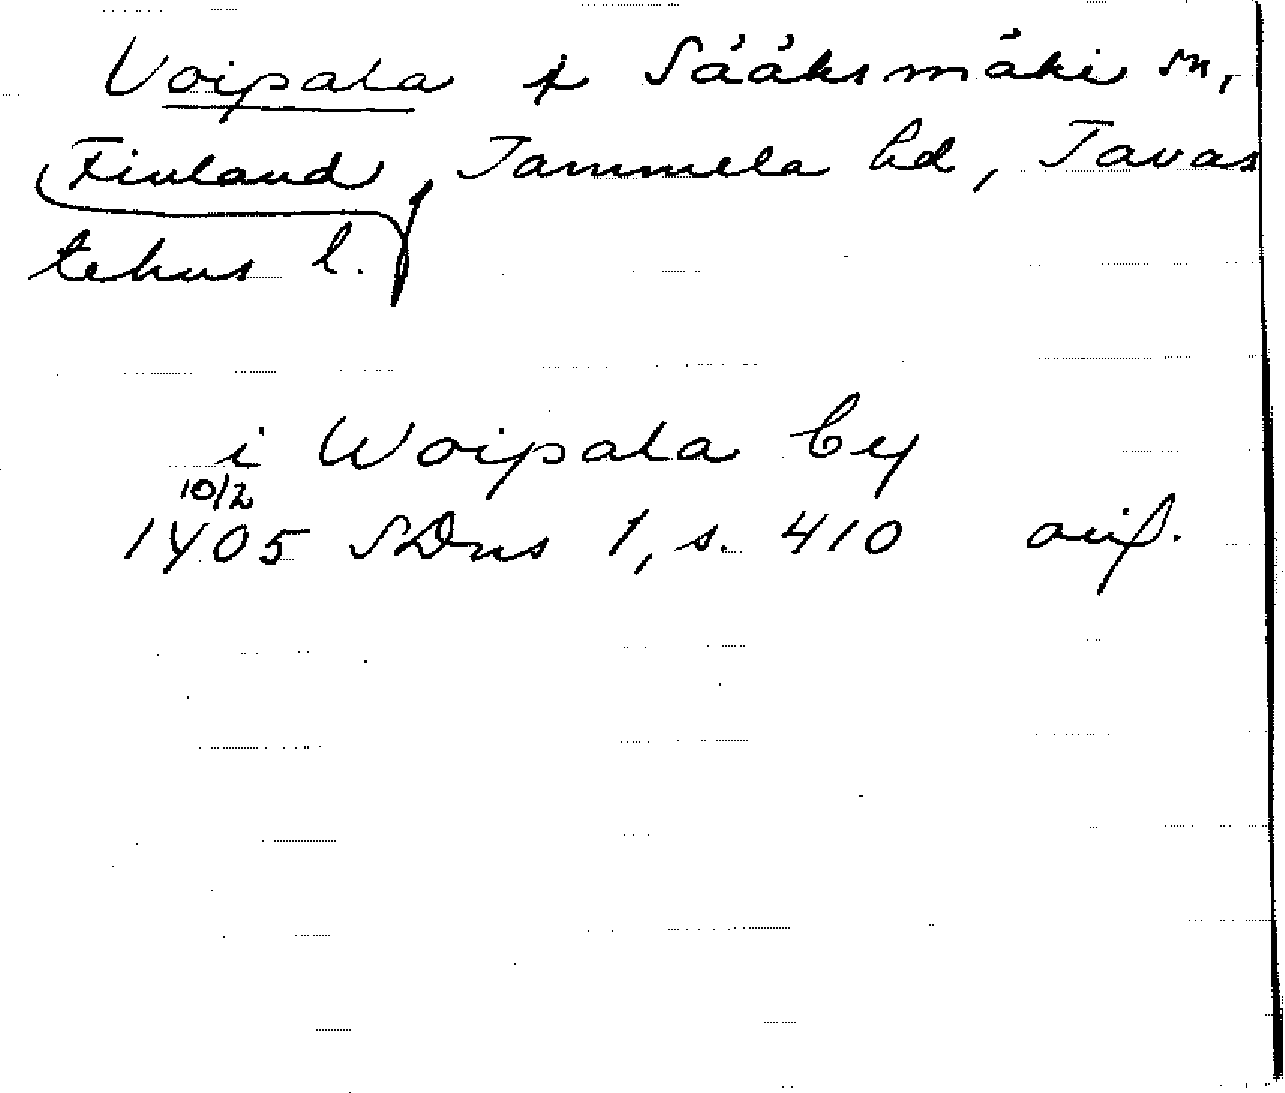 Voipala i Sääksmäki sn,
Finland, Tammela hd, Tavas
tehus l.
i Woipala by
10/2
1405 SDns 1, s. 410 avif.